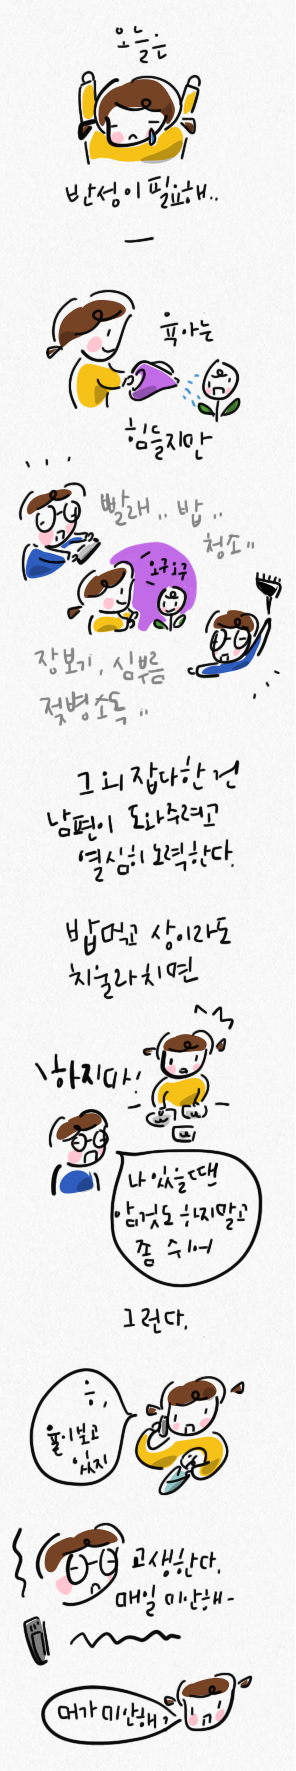 오늘은
반성이 필요해..
육아는
힘들지만
빨래.. 밥..
청소..
우구우구
장보기, 심부름
젖병소독..
그 외 잡다한 건
남편이 도와주려고
열심히 노력한다.
밥먹고 상이라도
치울라치면
하지마!
나 있을 땐
암것도 하지말고
좀 쉬어
그런다.
응,
율이보고
있지
고생한다.
매일 미안해-
머가 미안해,